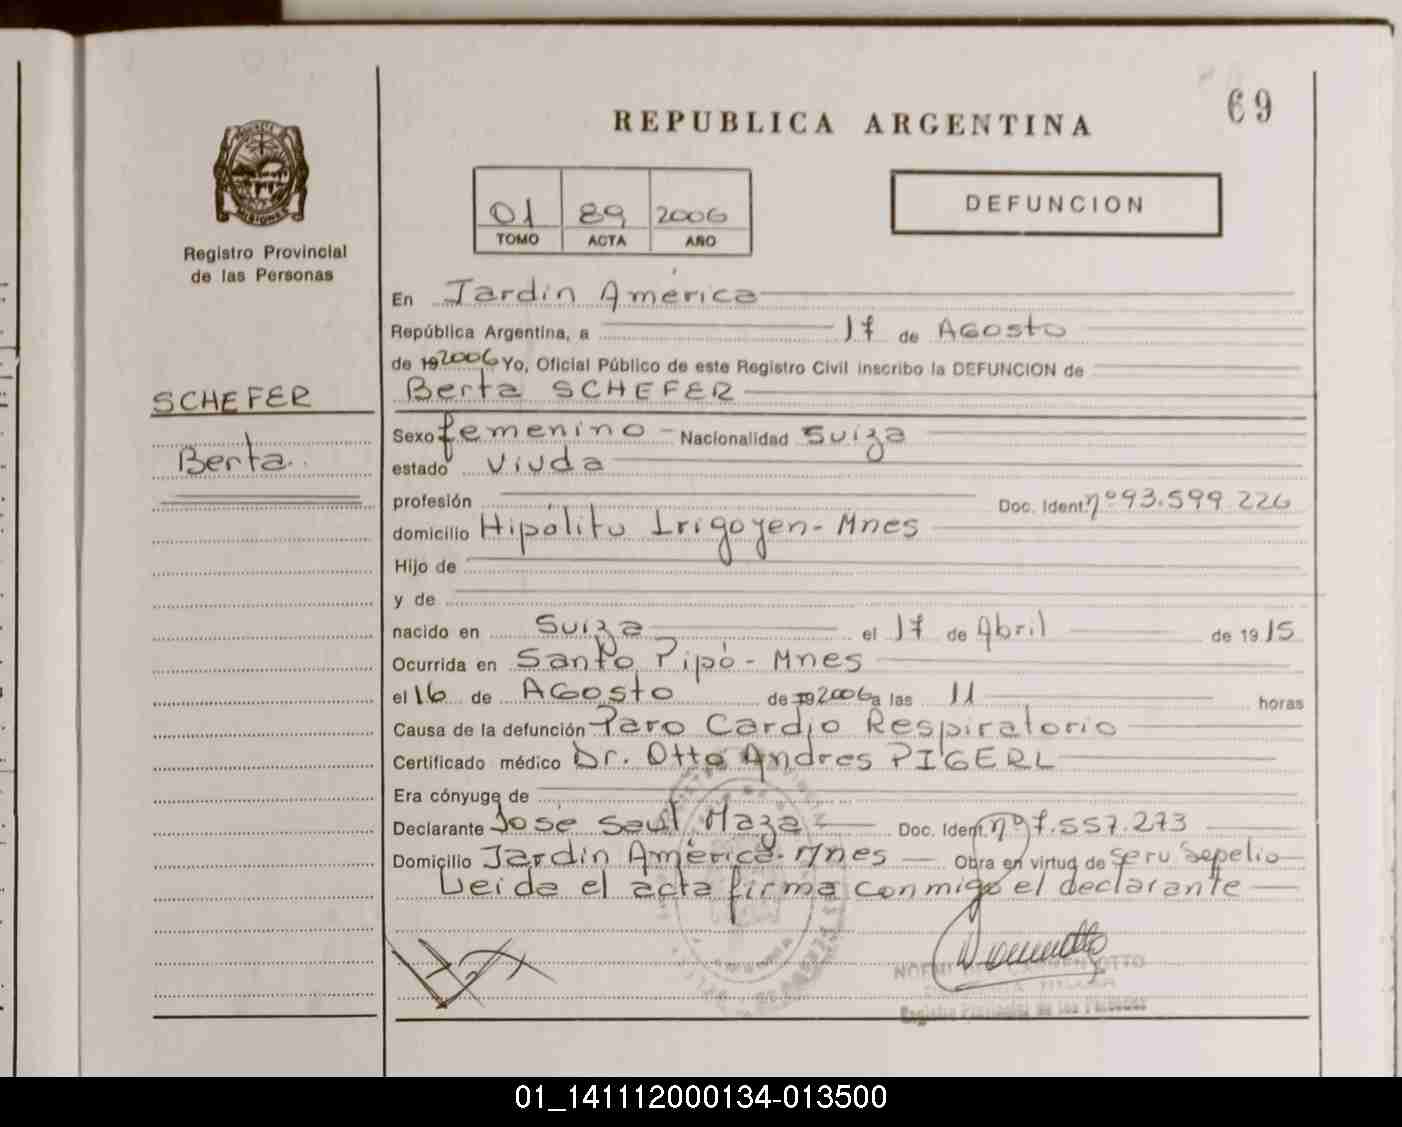 69
REPUBLICA ARGENTINA
MISIONES
Registro Provincial
de las Personas
01 89 2006
TOMO ACTA AÑO
DEFUNCION
En Jardín América
República Argentina, a 17 de Agosto
de 192006 Yo, Oficial Público de este Registro Civil inscribo la DEFUNCION de
SCHEFER
Berta
Berta SCHEFER
Sexo femenino Nacionalidad Suiza
estado Viuda
profesión Doc. Ident. nº 93.599 226
domicilio Hipólito Irigoyen - Mnes
Hijo de
y de
nacido en Suiza el 17 de Abril de 1915
Ocurrida en Santo Pipó - Mnes
el 16 de Agosto de 192006 a las 11 horas
Causa de la defunción Paro Cardio Respiratorio
Certificado médico Dr. Otto Andres PIGERL
Era cónyuge de
Declarante José Saul Maza Doc. Ident. nº 7.557.273
Domicilio Jardín América - Mnes Obra en virtud de Serv Sepelio
Leida el acta firma conmigo el declarante
Registro Provincial de las Personas
01_141112000134-013500